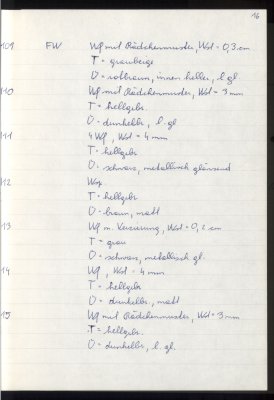 16
109 FW Wf mit Rädchenmuster, Wst = 0,3 cm
T = graubeige
O = rotbraun, innen heller, l. gl.
110 Wf mit Rädchenmuster, Wst = 3 mm
T = hellgebr.
O = dunkelbr., l. gl
111 4 Wf, Wst = 4 mm
T = hellgebr.
O = schwarz, metallisch glänzend
112
T = hellgebr.
O = braun, matt
113 Wf m. Verzierung, Wst = 0,2 cm
T = grau
O = schwarz, metallisch gl.
114 Wf, Wst = 4 mm
T = hellgebr.
O = dunkelbr., matt
115 Wf mit Rädchenmuster, Wst = 3 mm
T = hellgebr.
O = dunkelbr., l. gl.